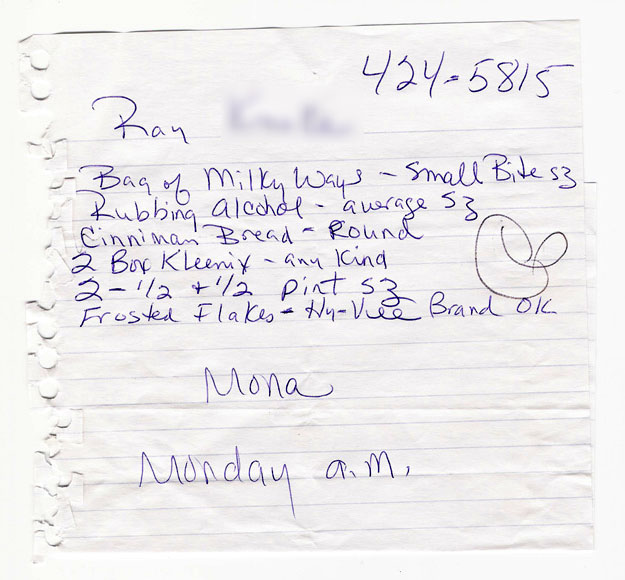 424-5815
Ray
Bag of Milky Ways - Small Bite sz
Rubbing alcohol - average sz
Cinniman Bread - Round
2 Box Kleenix - any kind
2 - 1/2 + 1/2 pint sz
Frosted Flakes - Hy-Vee Brand OK
Mona
Monday a.m.